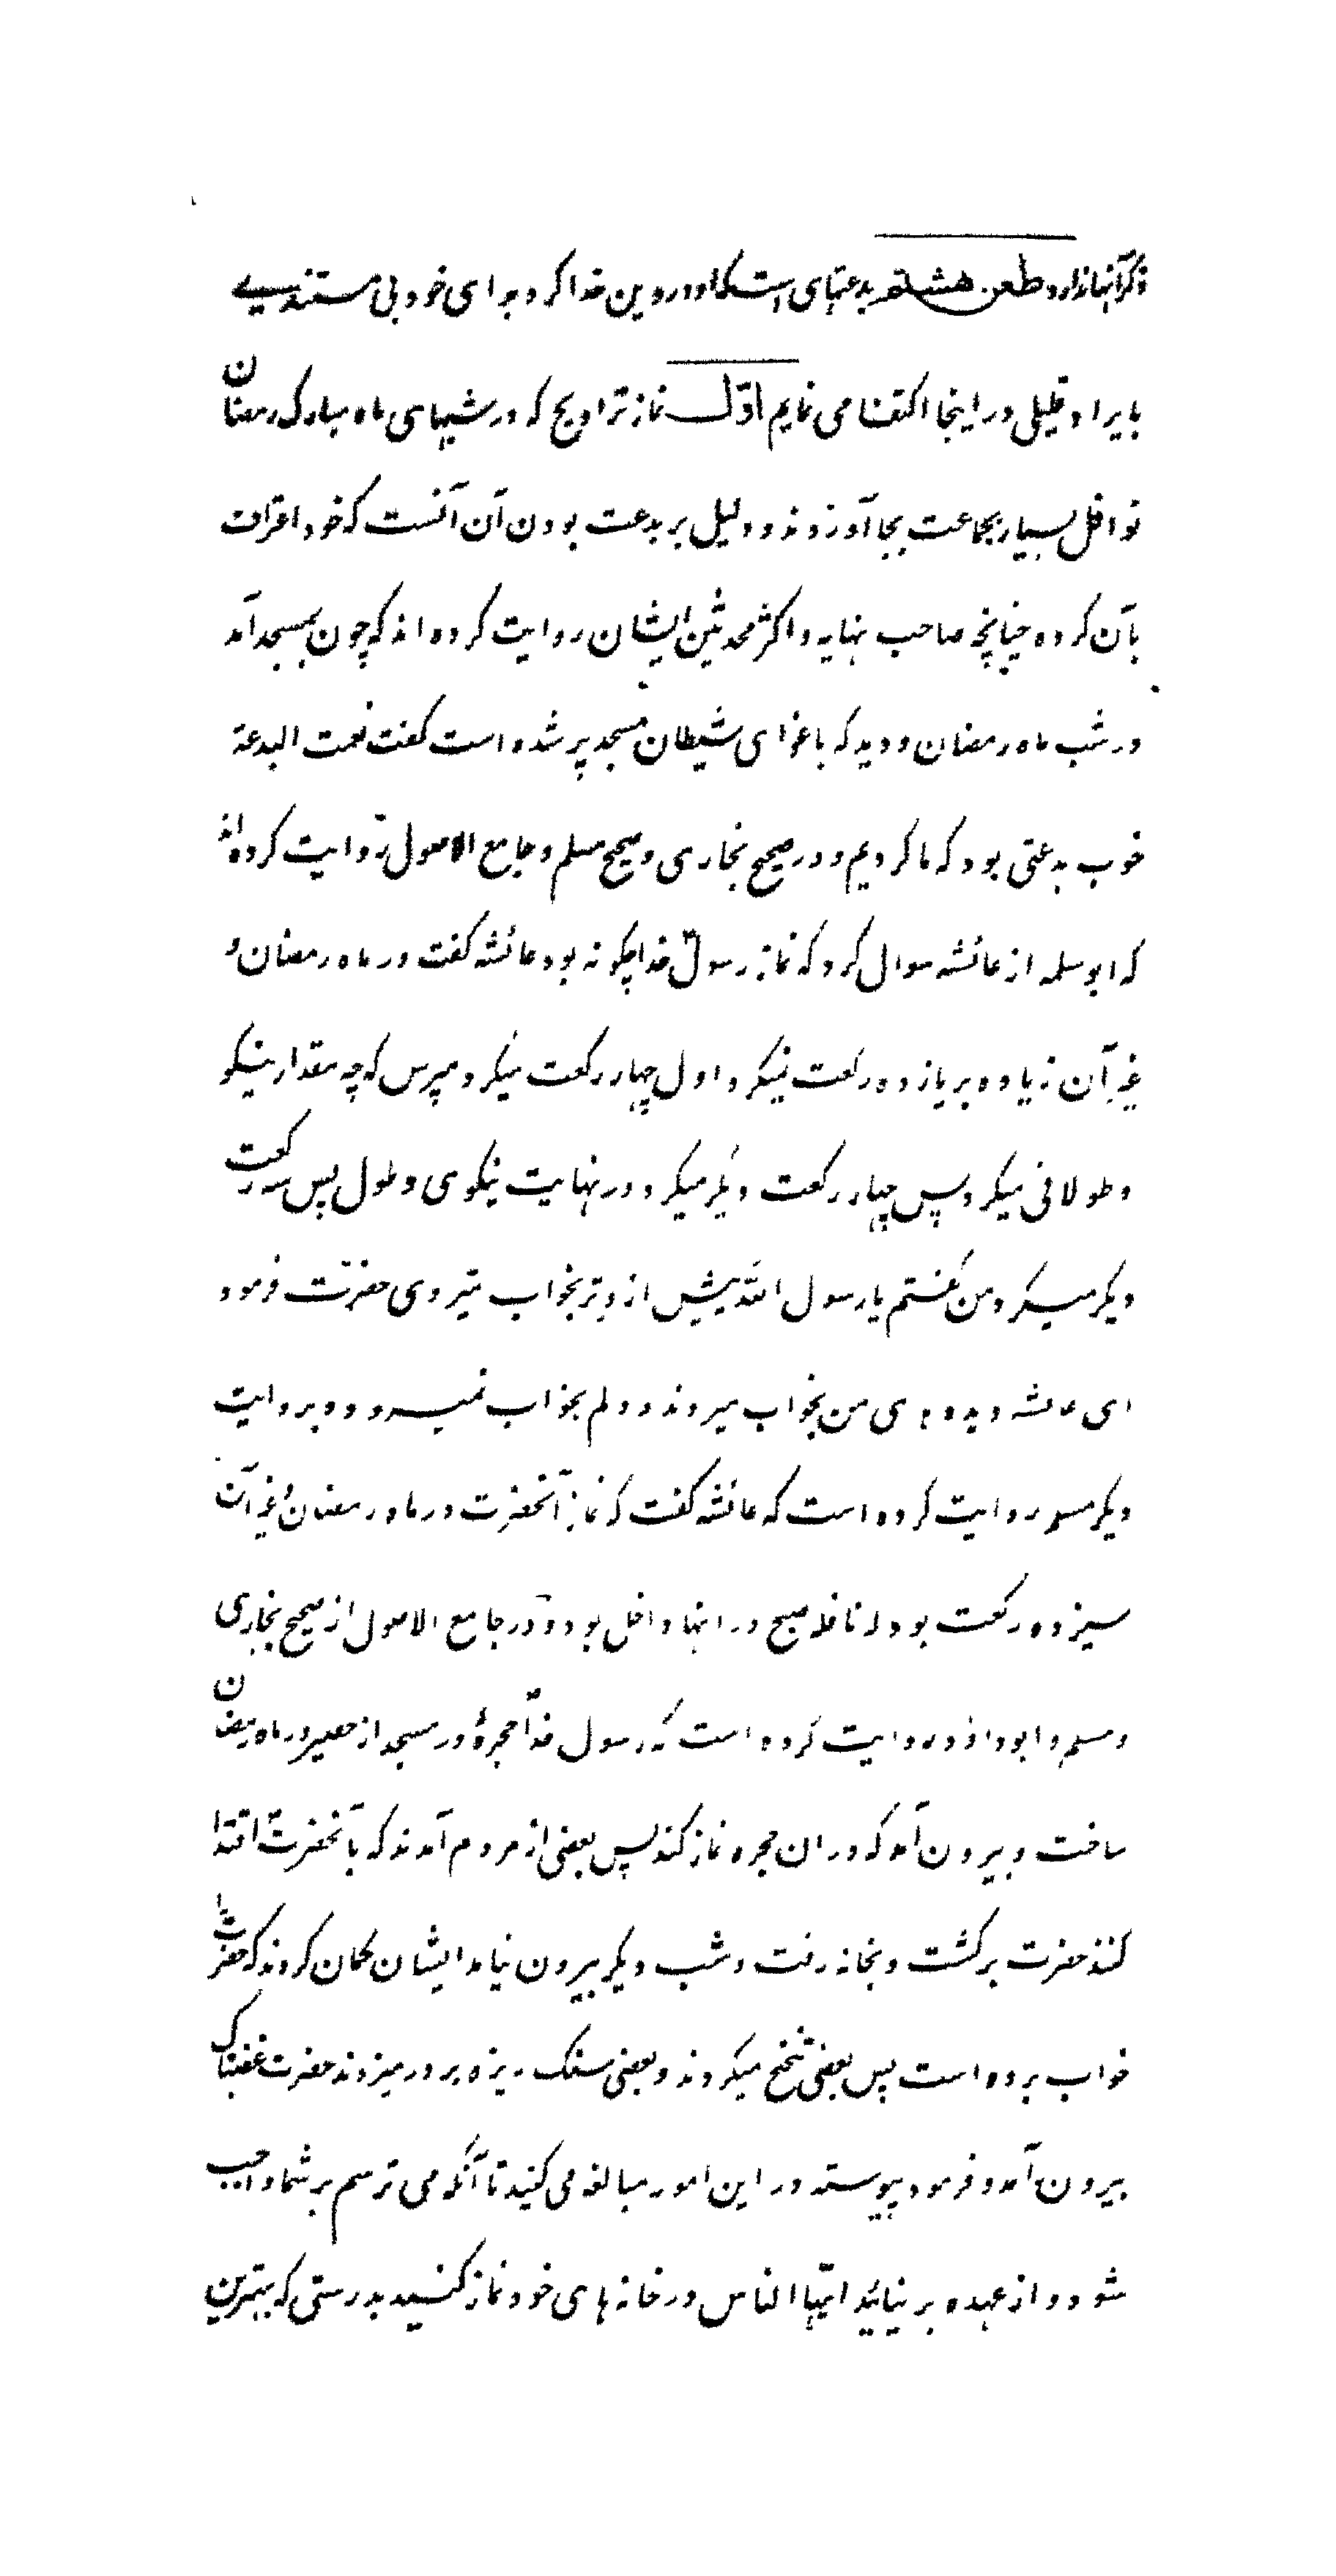 ذکر آنها ندارد طعن هشتم بدعتهای است که او در دین خدا کرد برای خود بی مستندی
بایراد قلیلی در اینجا اکتفا می نمایم اوّل نماز تراویح که در شبهای ماه مبارک رمضان
نوافل بسیار بجماعت بجا آوردند و دلیل بر بدعت بودن آن آنست که خود اعتراف
بآن کرده چنانچه صاحب نهایه و اکثر محدثین ایشان روایت کرده اند که چون بمسجد آمد
در شب ماه رمضان و دید که باغوای شیطان مسجد پر شده است کفت نعمت البدعة
خوب بدعتی بود که ما کردیم و در صحیح بخاری و صحیح مسلم و جامع الاصول روایت کرده اند
که ابو سلمه از عائشه سوال کرد که نماز رسول خدا چکونه بود عائشه کفت در ماه رمضان و
غیر آن زیاده بر یازده رکعت نمیکرد اول چهار رکعت میکرد مپرس که چه مقدار نیکو
و طولانی میکرد پس چهار رکعت دیکر میکرد در نهایت نیکوی و طول پس سه رکعت
دیکر میکرد من کفتم یا رسول الله پیش از وتر بخواب میروی حضرت فرمود
ای عائشه دیدهای من بخواب میروند و دلم بخواب نمیرود و بروایت
دیکر مسلم روایت کرده است که عائشه کفت که نماز آنحضرت در ماه رمضان و غیر آن
سیزده رکعت بود که نافله صبح در انها داخل بود و در جامع الاصول از صحیح بخاری
و مسلم و ابو داود روایت کرده است که رسول خدا حجرۀ در مسجد از حصیر در ماه رمضان
ساخت و بیرون آمد که در ان حجره نماز کند پس بعضی از مردم آمدند که بآنحضرت اقتدا
کنند حضرت برکشت و بخانه رفت و شب دیکر بیرون نیامد ایشان کمان کردند که حضرت را
خواب برده است پس بعضی تنحنح میکردند و بعضی سنک ریزه بر در میزدند حضرت غضبناک
بیرون آمد و فرمود پیوسته در این امور مبالغه می کنید تا آنکه می ترسم بر شما واجب
شود و از عهده بر نیائید ایّها الناس در خانه های خود نماز کنسید بدرستی که بهترین